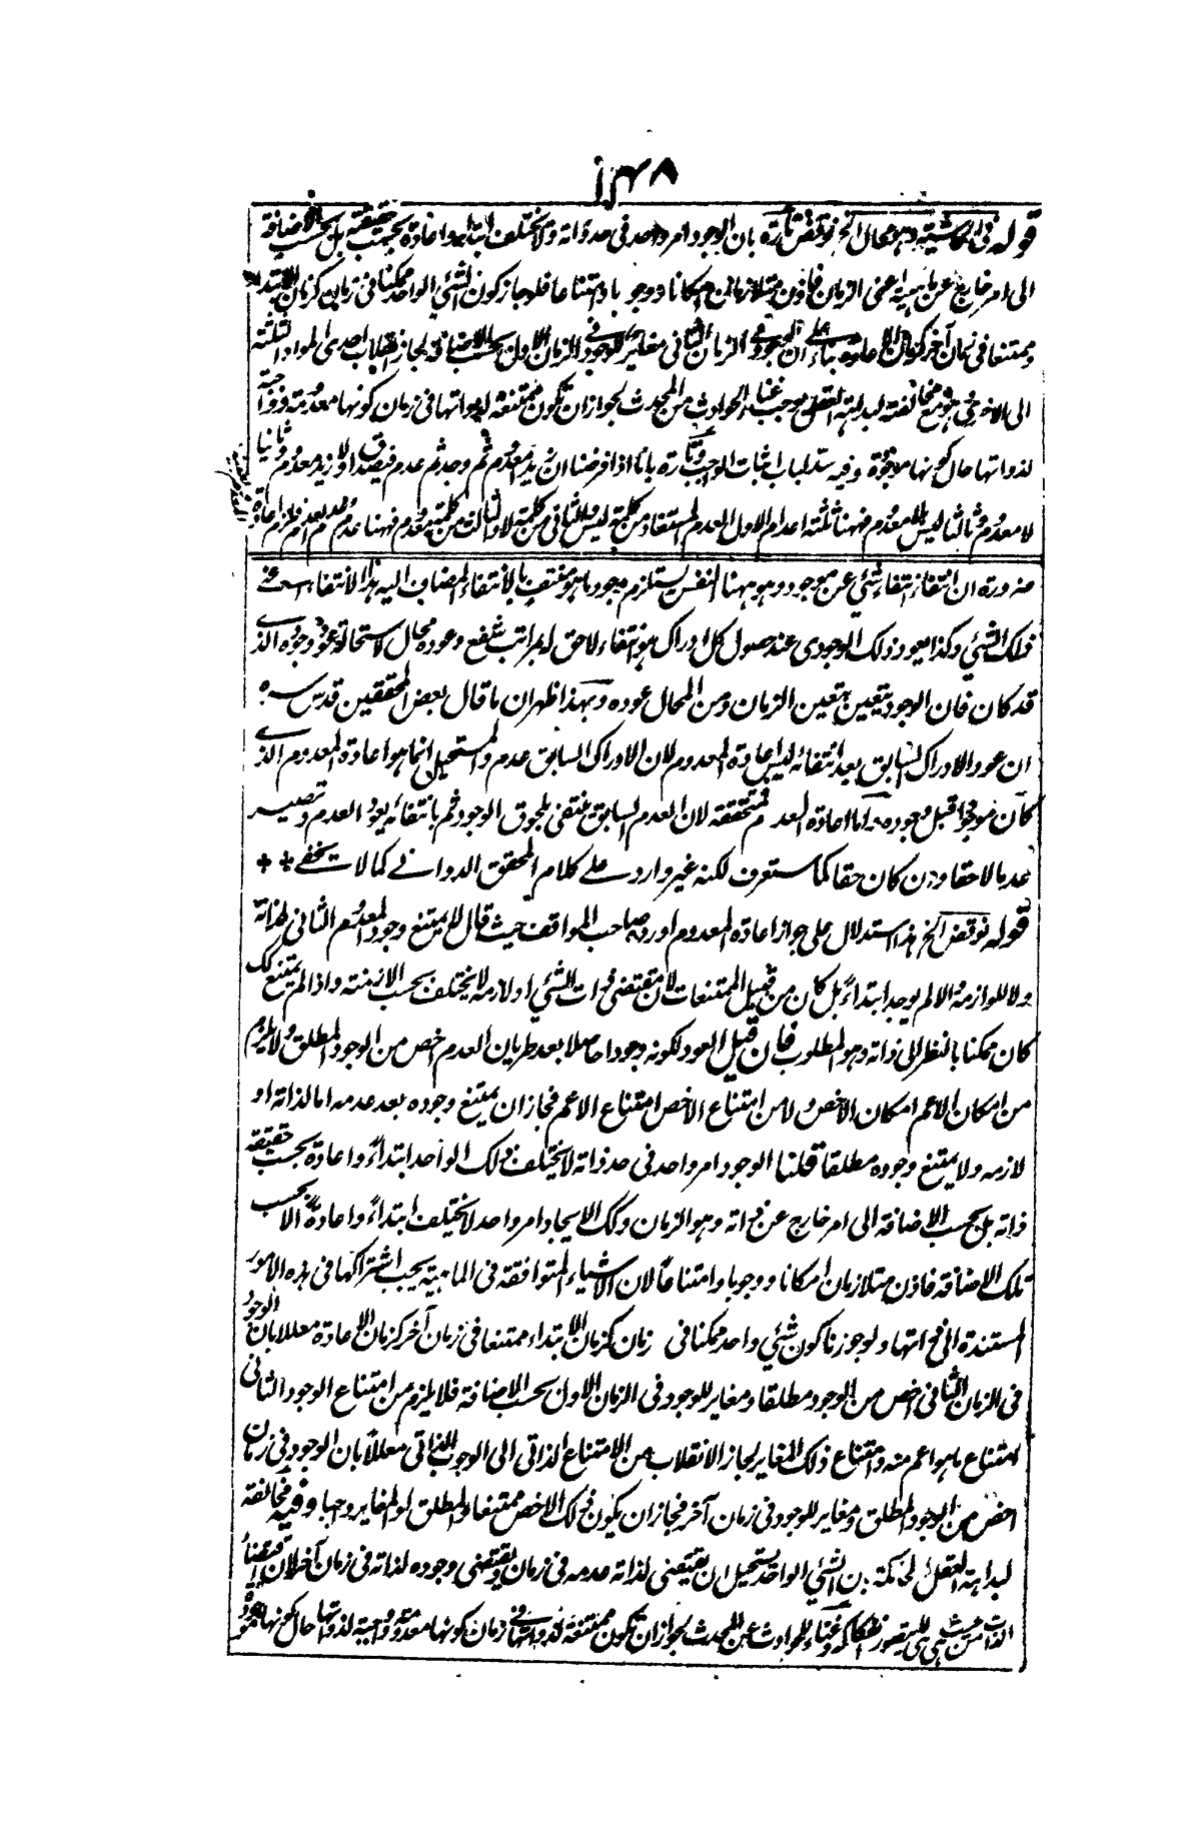 ١٣٨
قوله فى الحاشية وهو محال الخ نوقض تارة بان الوجود امر واحد فى حد ذاته ولا يختلف ابتداء واعادة بحسب حقيقته بل بحسب الاضافة
الى امر خارج عن ماهيته اعنى الزمان فاذن متلازمان امكانا ووجوبا وامتناعا فلو جاز كون الشئ الواحد ممكنا فى زمان كزمان الابتداء
وممتنعا فى زمان آخر كزمان الاعادة بناء على ان الوجود فى الزمان الثانى مغاير للوجود فى الزمان الاول بحسب الاضافة لجاز انقلاب احدى المواد الثلثة
الى الاخرى وهو مع مخالفته لبداهة العقل يوجب غناء الحوادث من المحدث لجواز ان تكون ممتنعة لذواتها فى زمان كونها معدومة وواجبة
لذواتها حال كونها موجودة وفيه سد لباب اثبات الواجب وتارة بانا اذا فرضنا ان زيد معدوم ثم وجد ثم عدم فيصدق اولا زيد معدوم وثانيا
لا معدوم وثالثا ليس بلا معدوم فههنا ثلثة اعدام الاول العدم المستفاد من كلمة ليس والثانى من كلمة لا والثالث من كلمة معدوم فههنا عدم عدم العدم فلزم اعادة
ضرورة ان انتفاء انتفاء شئ عن موجود وهو ههنا النفس يستلزم وجود ما هو منتف بالانتفاء المضاف اليه هذا الانتفاء
ذلك الشئ وكذا يعود ذلك الوجودى عند حصول كل ادراك هو انتفاء لاحق لمراتب شفع وعوده محال لاستحالة عود وجوده الذى
قد كان فان الوجود يتعين بتعين الزمان ومن المحال عوده وبهذا ظهر ان ما قال بعض المحققين قدس سره
ان عود الادراك السابق بعد انتفائه ليس اعادة المعدوم لان الادراك السابق عدم والمستحيل انما هو اعادة المعدوم الذى
كان موجودا قبل وجوده واما اعادة العدم فمتحققة لان العدم السابق ينتفى بلحوق الوجود ثم بانتفائه يعود العدم وتصير
عدما لاحقا وان كان حقا كما ستعرف لكنه غير وارد على كلام المحقق الدوانى كما لا يخفى
قوله نوقض الخ هذا استدلال على جواز اعادة المعدوم اورده صاحب المواقف حيث قال لا يمتنع وجود المعدوم الثانى لذاته
ولا للوازمه والا لم يوجد ابتداء بل كان من قبيل الممتنعات لان مقتضى ذات الشئ او لازمه لا يختلف بحسب الازمنة واذا لم يمتنع ذلك
كان ممكنا بالنظر الى ذاته وهو المطلوب فان قيل العود لكونه وجودا حاصلا بعد طريان العدم اخص من الوجود المطلق ولا يلزم
من امكان الاعم امكان الاخص ولا من امتناع الاخص امتناع الاعم فجاز ان يمتنع وجوده بعد عدمه اما لذاته او
لازمه ولا يمتنع وجوده مطلقا قلنا الوجود امر واحد فى حد ذاته لا يختلف ذلك الواحد ابتداء واعادة بحسب حقيقته
ذاته بل بحسب الاضافة الى امر خارج عن ذاته وهو الزمان وكذلك الايجاد امر واحد لا يختلف ابتداء واعادة الا بحسب
تلك الاضافة فاذن متلازمان امكانا ووجوبا وامتناعا لان الاشياء المتوافقة فى الماهية يجب اشتراكها فى هذه الامور
المستندة الى ذواتها ولو جوزنا كون شئ واحد ممكنا فى زمان كزمان الابتداء ممتنعا فى زمان آخر كزمان الاعادة معللا بان الوجود
فى الزمان الثانى اخص من الوجود مطلقا ومغاير للوجود فى الزمان الاول بحسب الاضافة فلا يلزم من امتناع الوجود الثانى
امتناع ما هو اعم منه وامتناع ذلك المغاير لجاز الانقلاب من الامتناع الذاتى الى الوجوب الذاتى معللا بان الوجود فى زمان
اخص من الوجود المطلق ومغاير للوجود فى زمان آخر فجاز ان يكون ذلك الاخص ممتنعا والمطلق او المغاير واجبا وفيه مخالفة
لبداهة العقل الحاكمة بان الشئ الواحد يستحيل ان يقتضى لذاته عدمه فى زمان ويقتضى وجوده لذاته فى زمان آخر لان اقتضاء
الذات من حيث هى هى لا يتصور انفكاكه وغناء للحوادث عن المحدث لجواز ان تكون ممتنعة لذواتها فى زمان كونها معدومة وواجبة لذواتها حال كونها موجودة